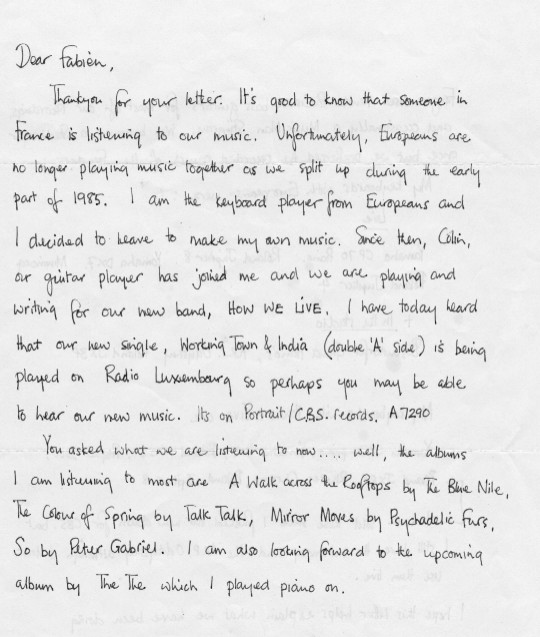 Dear Fabien,
Thankyou for your letter. It's good to know that someone in
France is listening to our music. Unfortunately, Europeans are
no longer playing music together as we split up during the early
part of 1985. I am the keyboard player from Europeans and
I decided to leave to make my own music. Since then, Colin,
our guitar player has joined me and we are playing and
writing for our new band, HOW WE LIVE. I have today heard
that our new single, Working Town & India (double 'A' side) is being
played on Radio Luxembourg so perhaps you may be able
to hear our new music. Its on Portrait/C.B.S. records. A7290
You asked what we are listening to now.... well, the albums
I am listening to most are A Walk across the Rooftops by The Blue Nile,
The Colour of Spring by Talk Talk, Mirror Moves by Psychadelic Furs,
So by Peter Gabriel. I am also looking forward to the upcoming
album by The The which I played piano on.